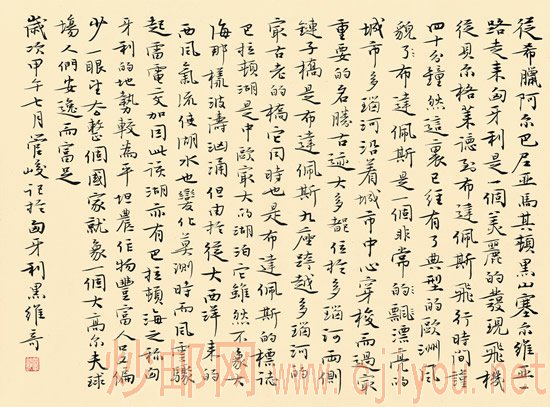 從希臘阿尔巴尼亚馬其頓黑山塞尔維亚一
路走来匈牙利是一個美麗的發現飛機
從貝尔格莱德到布達佩斯飛行時間謹
四十分鐘然這裏已經有了典型的歐洲風
貌了布達佩斯是一個非常的飄亮的
城市多瑙河沿着城市中心穿梭而過㝡
重要的名勝古迹大多都位於多瑙河兩側
鏈子橋是布達佩斯九座跨越多瑙河的
㝡古老的橋它同時也是布達佩斯的標誌
巴拉頓湖是中歐㝡大的湖泊它雖然不象大
海那樣波濤汹涌但由於從大西洋来的
西風氣流使湖水也變化莫測時而風雲驟
起雷電交加因此該湖亦有巴拉頓海之称匈
牙利的地勢較為平坦農作物豐富人口偏
少一眼望去整個國家就象一個大高尔夫球
場人們安逸而富足
歲次甲午七月管峻記於匈牙利黑維哥
炒邮网
www.cjiyou.com